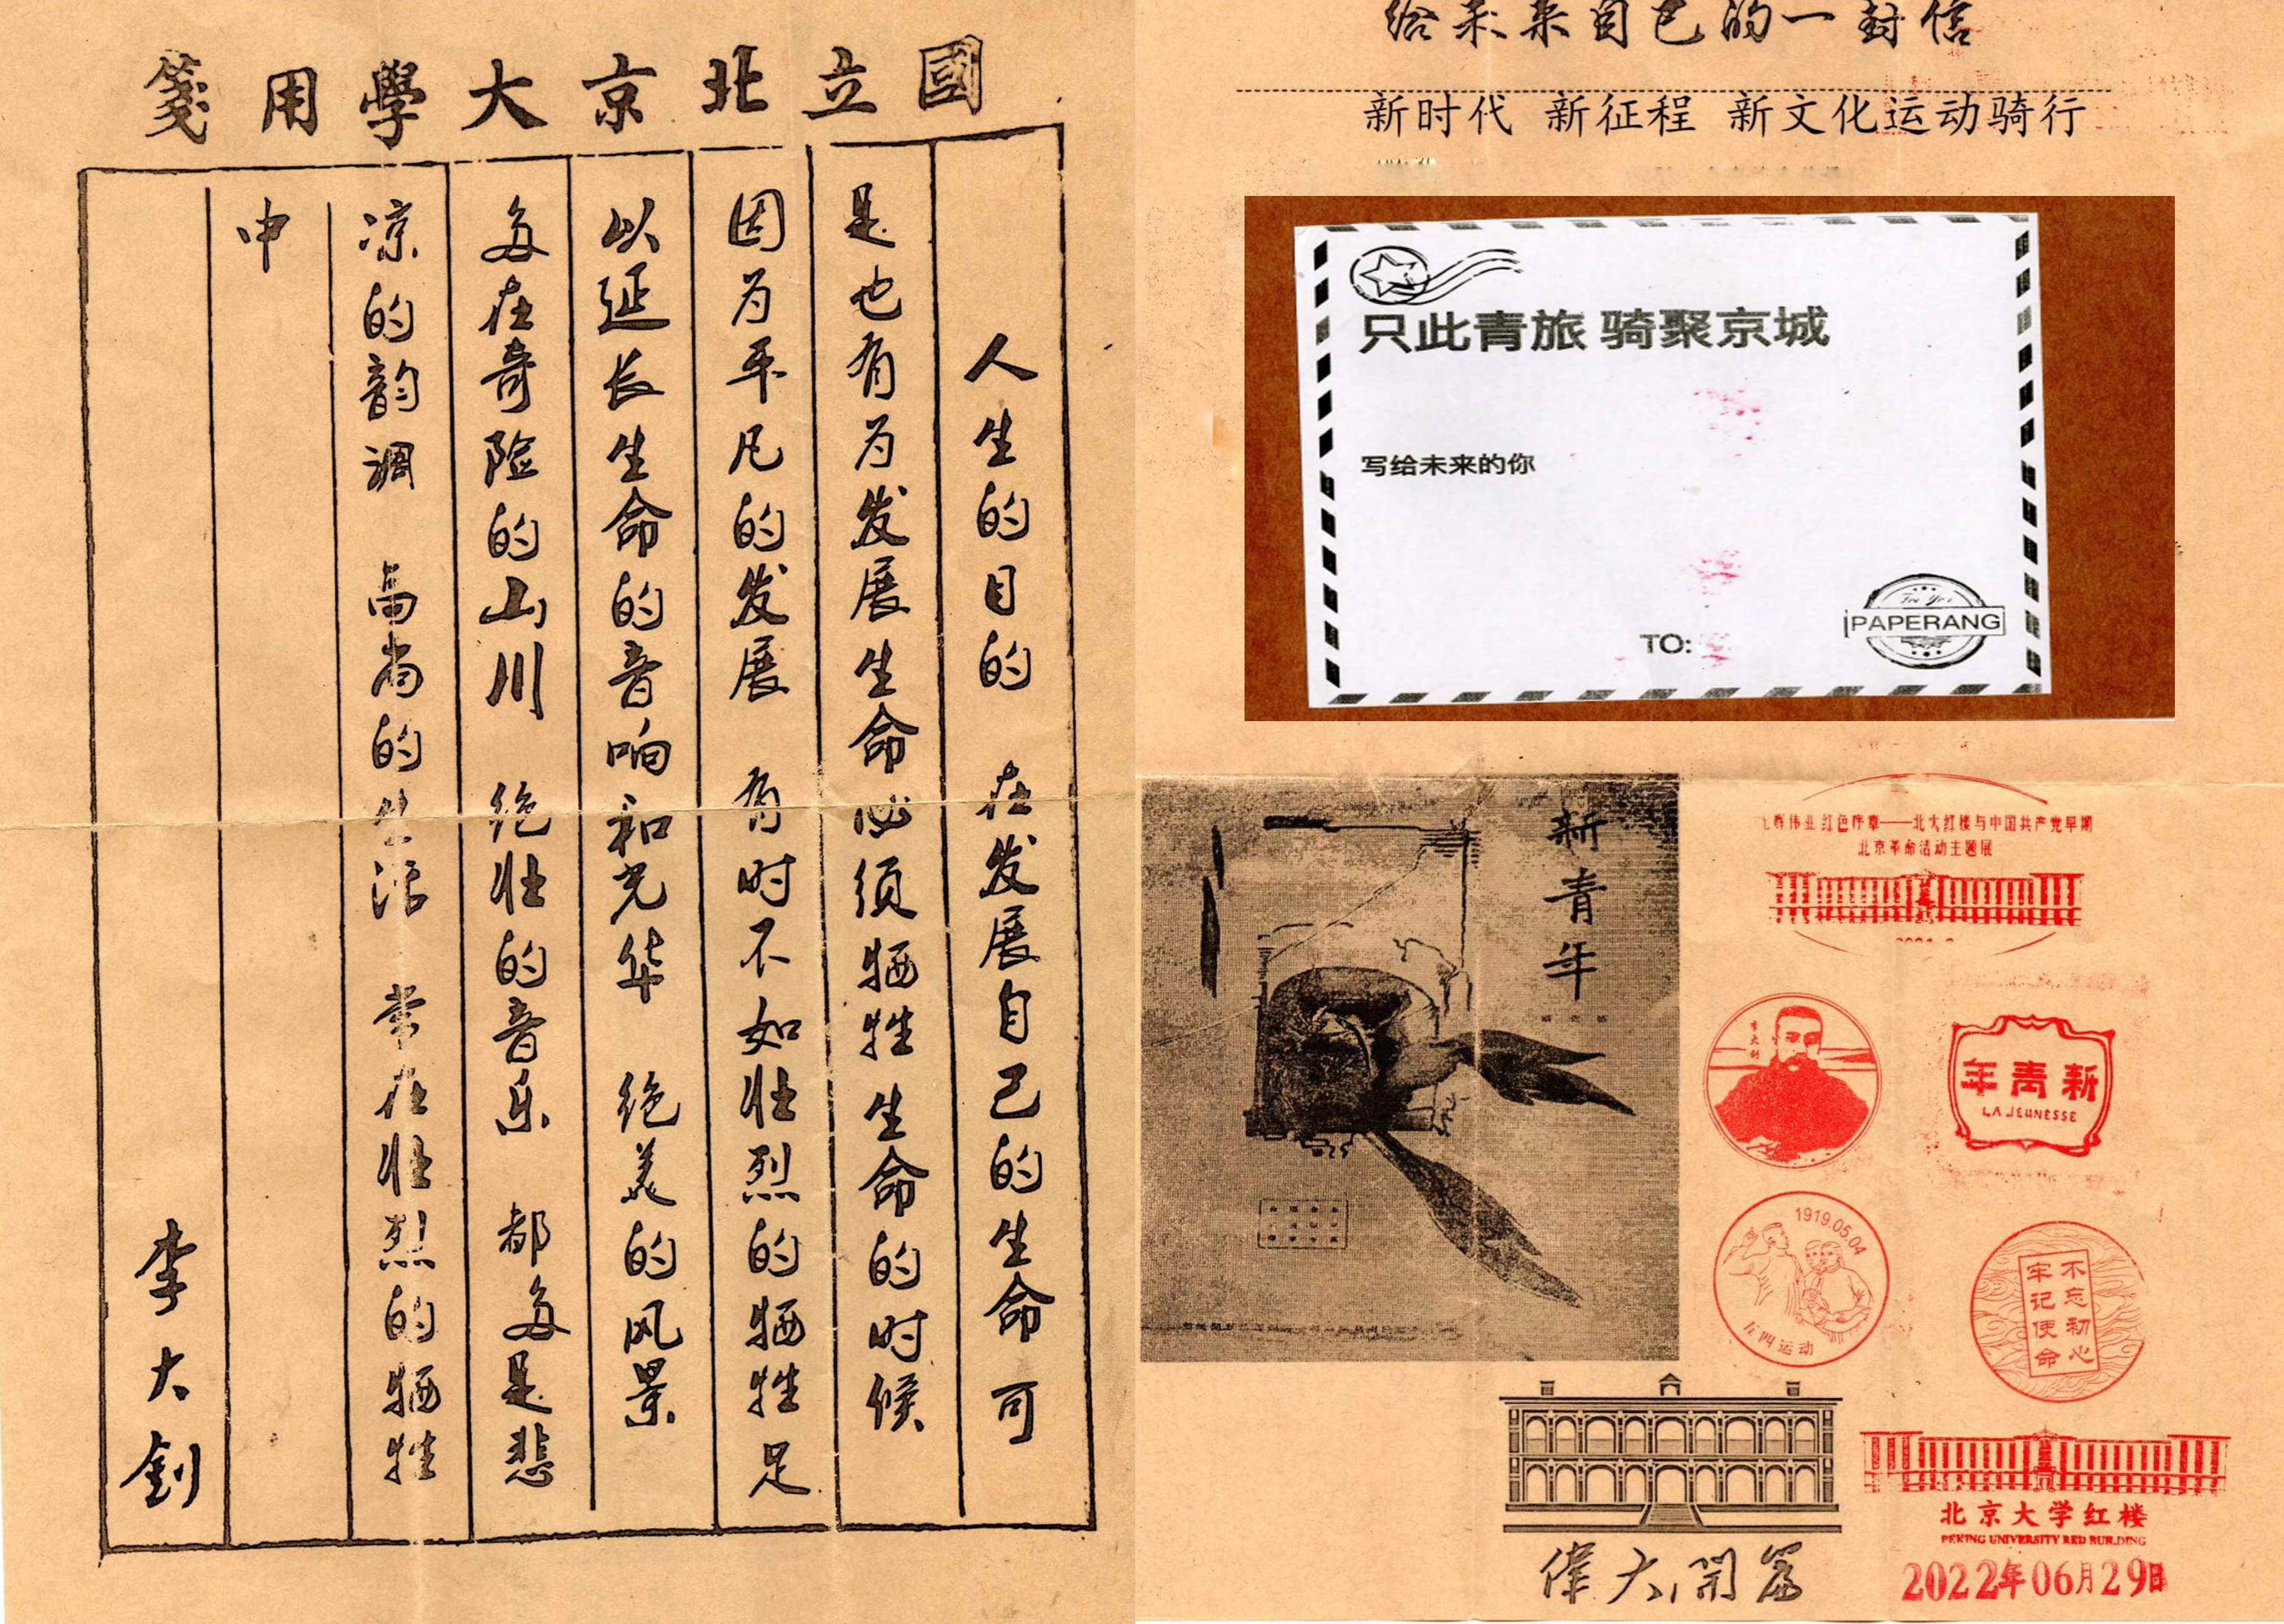 國立北京大學用箋
人生的目的 在发展自己的生命 可
是也有为发展生命必须牺牲生命的时候
因为平凡的发展 有时不如壮烈的牺牲足
以延长生命的音响和光华 绝美的风景
多在奇险的山川 绝壮的音乐 都多是悲
凉的韵调 高尚的生活 常在壮烈的牺牲
中
李大釗
给未来自己的一封信
新时代 新征程 新文化运动骑行
只此青旅 骑聚京城
写给未来的你
TO:
PAPERANG
新青年
辉伟业 红色序章——北大红楼与中国共产党早期
北京革命活动主题展
李大钊
新青年
LA JEUNESSE
1919.05.04
五四运动
不忘初心
牢记使命
偉大開篇
北京大学红楼
PEKING UNIVERSITY RED BUILDING
2022年06月29日